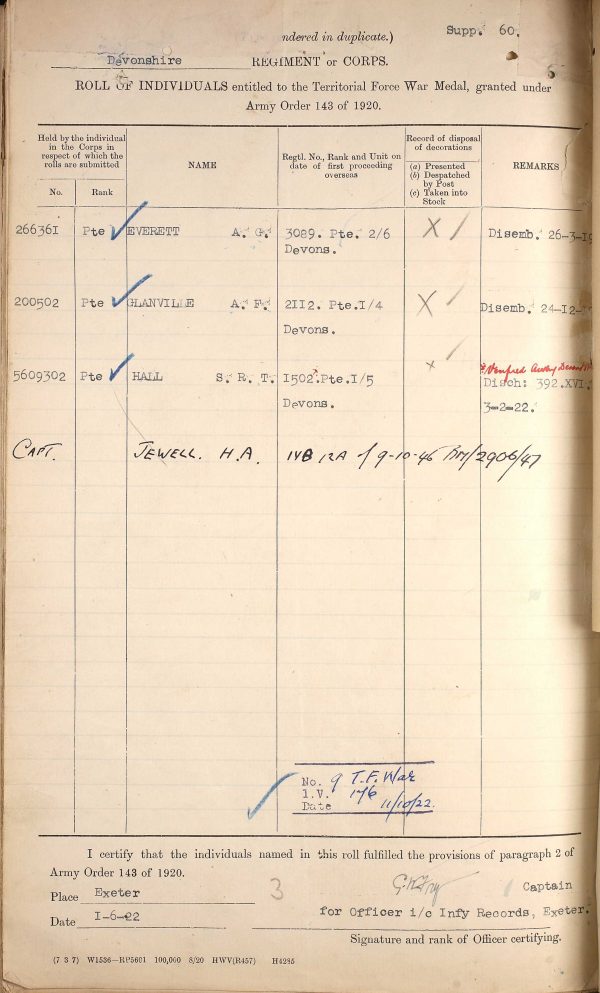 ndered in duplicate.)
Supp. 60.
Devonshire REGIMENT or CORPS.
ROLL OF INDIVIDUALS entitled to the Territorial Force War Medal, granted under
Army Order 143 of 1920.
Held by the individual
in the Corps in
respect of which the
rolls are submitted
No. Rank
NAME
Regtl. No., Rank and Unit on
date of first proceeding
overseas
Record of disposal
of decorations
(a) Presented
(b) Despatched
by Post
(c) Taken into
Stock
REMARKS
266361 Pte EVERETT A. G. 3089. Pte. 2/6 X Disemb. 26-3-
Devons.
200502 Pte GLANVILLE A. F. 2112. Pte.1/4 X Disemb. 24-12-
Devons.
5609302 Pte HALL S. R. T. 1502.Pte.1/5 x
Disch: 392.XVI.
Devons. 3-2-22.
CAPT. JEWELL. H.A. 9-10-46 2906/47
No. 9 T.F. War
1.V. 176
Date 11/10/22.
I certify that the individuals named in this roll fulfilled the provisions of paragraph 2 of
Army Order 143 of 1920.
Place Exeter 3 Captain
Date 1-6-22 for Officer i/c Infy Records, Exeter.
Signature and rank of Officer certifying.
(7 3 7) W1536—RP5601 100,000 8/20 HWV(R457) H4285